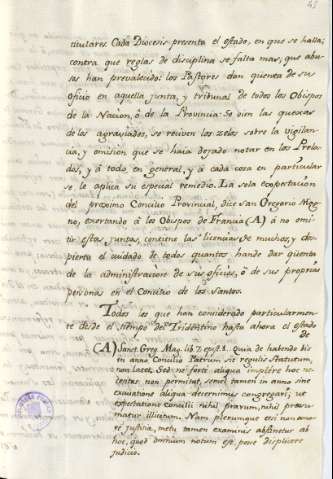 titulares Cada Diocesis presenta el estado, en que se halla;
contra que reglas de disciplina se falta mas, que abu-
sas han prevalecido: los Pastores dan quenta de sus
oficio en aquella junta, y tribunal de todos los Obispos
de la Nacion, ò de la Provincia: Se oien las quexas
de los agraviados, se reviven los zelos sobre la vigilan-
cia, y omision que se haia dejado notar en los Prela-
dos, y à todo en general, y à cada cosa en particular
se le aplica su especial remedio. La sola expectacion
del proximo Concilio Provincial, dice san Gregorio Mag-
no, exortando à los Obispos de Francia (A) à no omi-
tir estas juntas, contiene las licencias de muchos, y des-
pierta el cuidado de todos quantos han de dar quenta
de la administracion de sus oficios, ò de sus propias
personas en el Concilio de los santos.
Todos los que han considerado particularmen-
te desde el tiempo del Tridentino hasta ahora el estado
de
(A) Sanct. Greg. Mag. lib. 7. epist. Quia de habendo bis
in anno Concilio Patrum sit regulis statutum,
non latet. Sed ne forte aliqua implere hoc ne-
cesitas non permitat, semel tamen in anno sine
excusatione aliqua decernimus congregari; ut
expectatione Concilii nihil pravum, nihil presu-
matur illicitum. Nam plerumque etsi non amo-
re justitiæ, metu tamen examinis abstinetur ab
hoc, quod omnium notum est posse displicere
judicio.